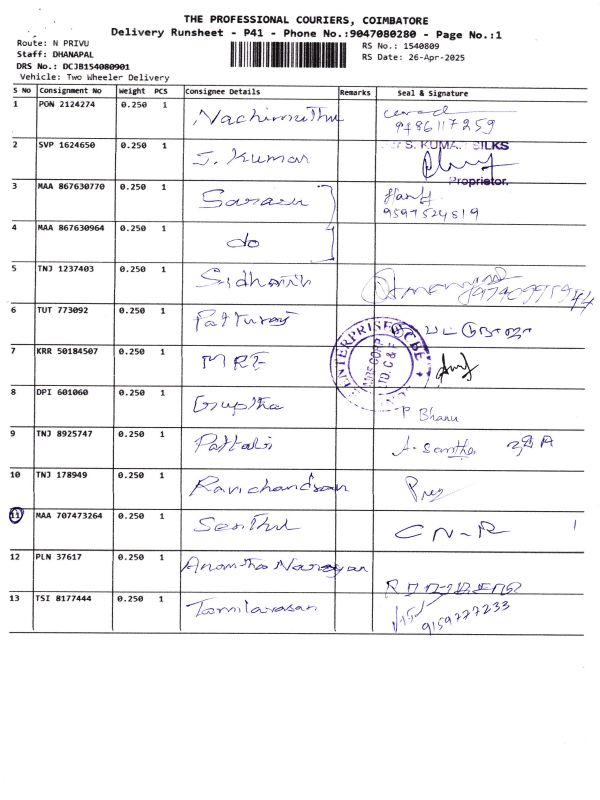 THE PROFESSIONAL COURIERS, COIMBATORE
Delivery Runsheet - P41 - Phone No.:9047080280 - Page No.:1
Route: N PRIVU
RS No.: 1540809
Staff: DHANAPAL
RS Date: 26-Apr-2025
DRS No.: DCJB154080901
Vehicle: Two Wheeler Delivery
S No Consignment No Weight PCS Consignee Details Remarks Seal & Signature
1 PON 2124274 0.250 1 Nachimuthu
9486117259
2 SVP 1624650 0.250 1 J. Kumar
S. KUMA SILKS
Proprietor.
3 MAA 867630770 0.250 1 Sarasu
9597524819
4 MAA 867630964 0.250 1 do
5 TNJ 1237403 0.250 1
6 TUT 773092 0.250 1 Patturaj
ENTERPRISE CBE
7 KRR 50184507 0.250 1 MRF
LTD. C & F
8 DPI 601060 0.250 1 Guptha P Bhanu
9 TNJ 8925747 0.250 1 Pattabi A. Santha
10 TNJ 178949 0.250 1 Ravichandran
11 MAA 707473264 0.250 1 Senthil CN-R
12 PLN 37617 0.250 1 Anantha Narayan
13 TSI 8177444 0.250 1 Tamilarasan
9159777233